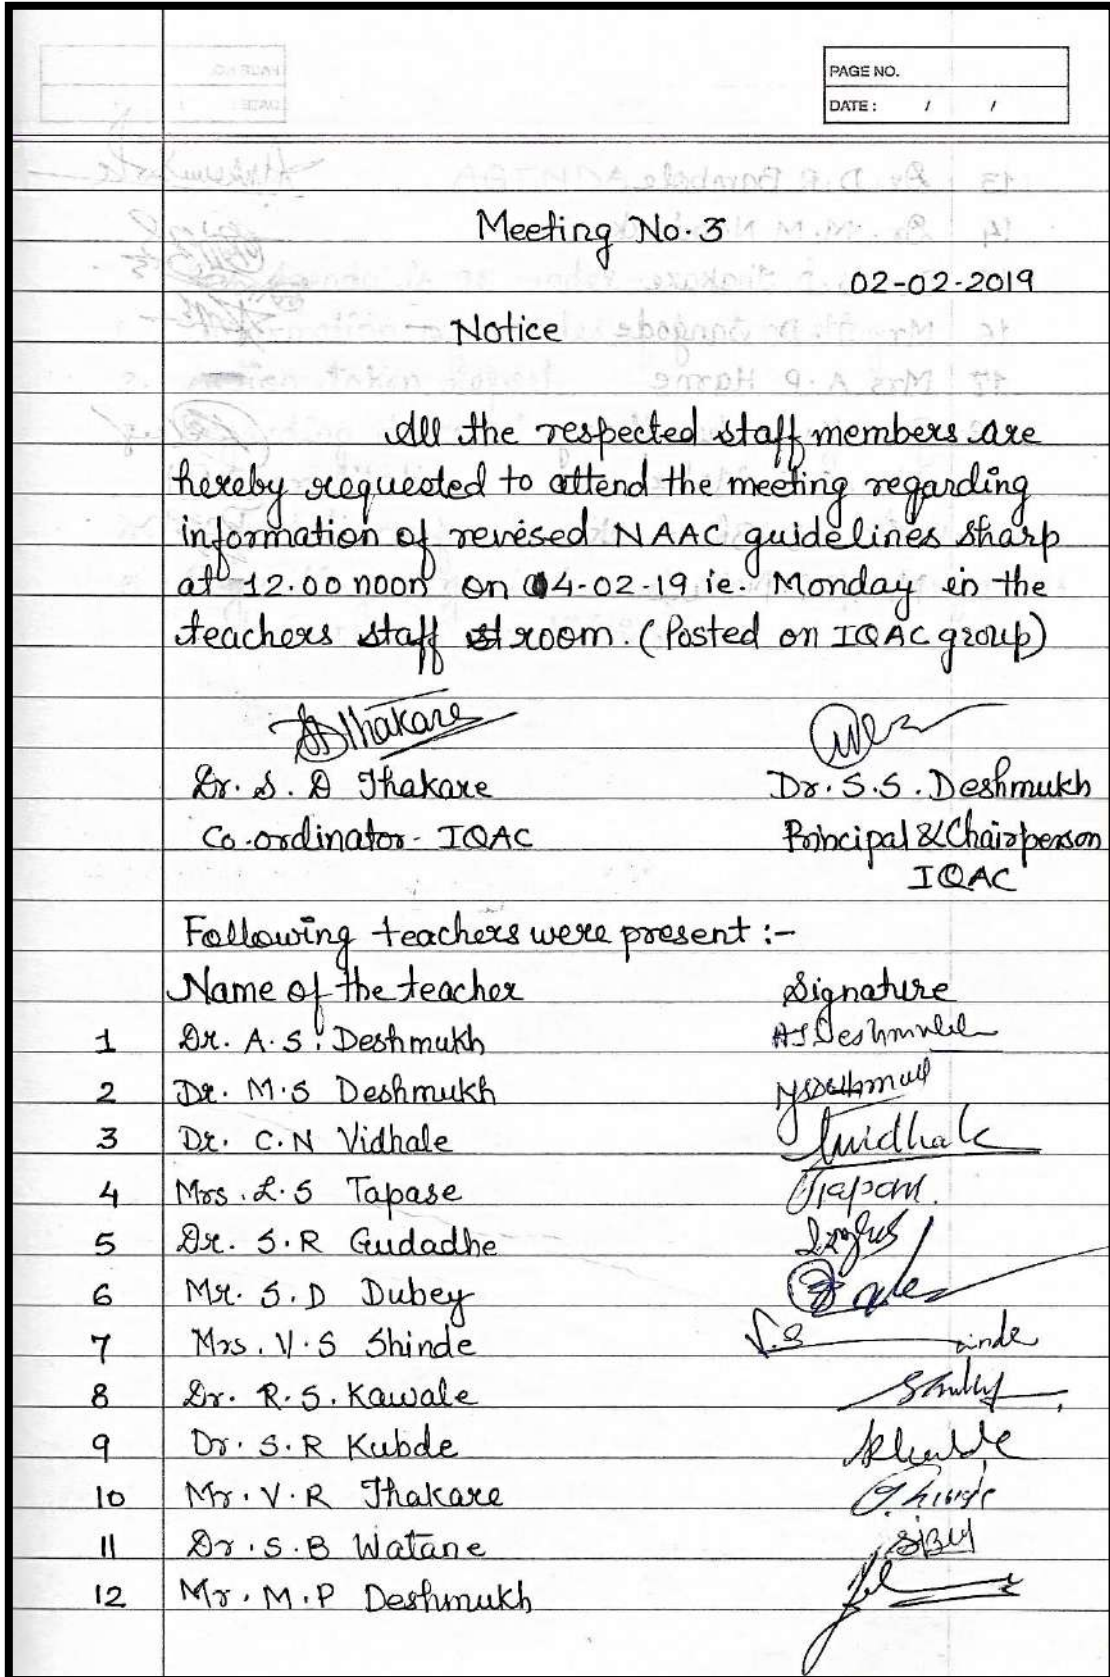 PAGE NO.
DATE : / /
Meeting No. 3
02-02-2019
Notice
All the respected staff members are
hereby requested to attend the meeting regarding
information of revised NAAC guidelines sharp
at 12.00 noon on 04-02-19 ie. Monday in the
teachers staff room. (Posted on IQAC group)
SDThakare
Dr. S. D Thakare Dr. S.S. Deshmukh
Co-ordinator - IQAC Principal & Chairperson
IQAC
Following teachers were present :-
Name of the teacher Signature
1 Dr. A.S. Deshmukh ASDeshmukh
2 Dr. M.S Deshmukh MSDeshmukh
3 Dr. C.N Vidhale
4 Mrs. L.S Tapase
5 Dr. S.R Gudadhe
6 Mr. S.D Dubey
7 Mrs. V.S Shinde
8 Dr. R.S. Kawale
9 Dr. S.R Kubde
10 Mr. V.R Thakare
11 Dr. S.B Watane
12 Mr. M.P Deshmukh